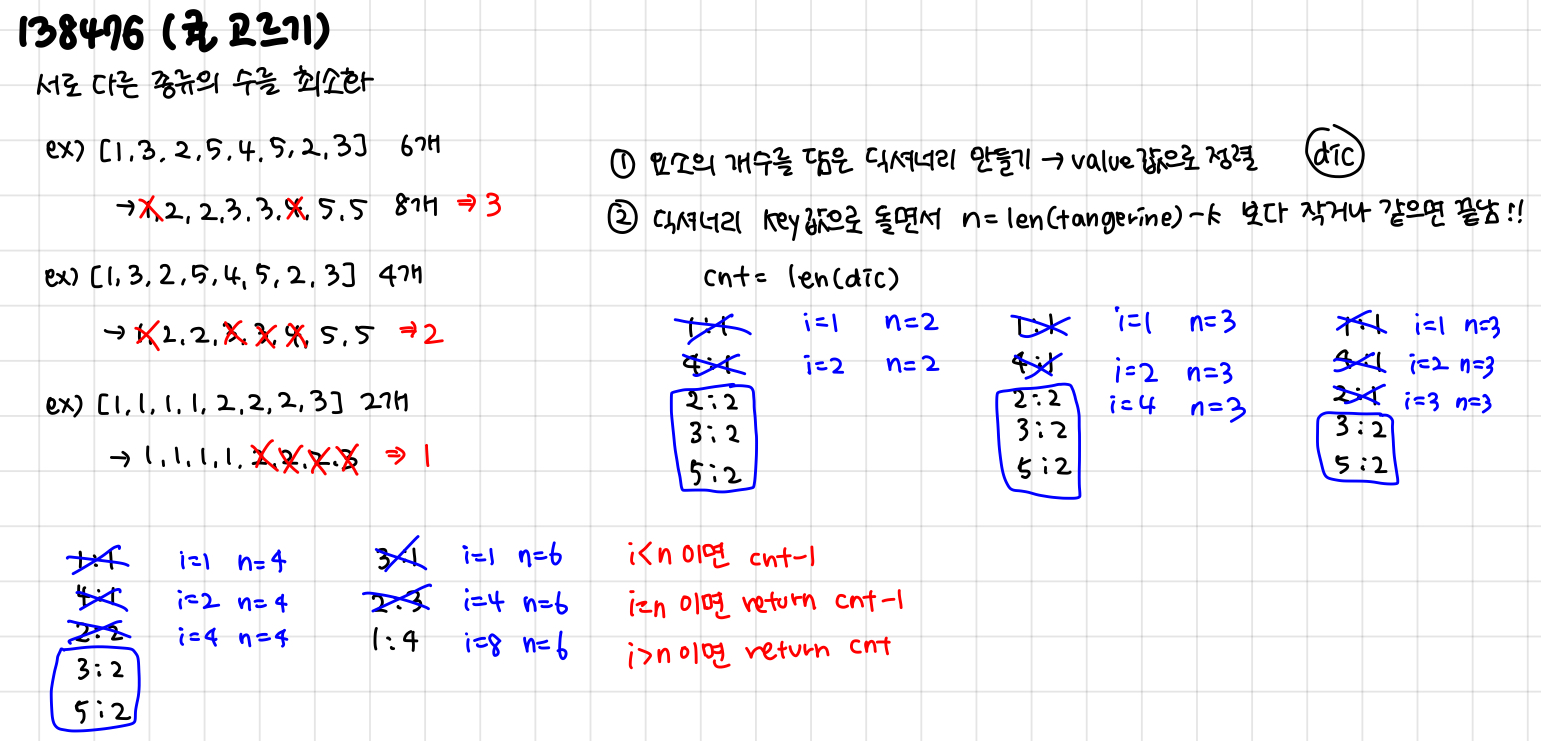 138476 (귤 고르기)
서로 다른 종류의 수를 최소화
ex) [1, 3, 2, 5, 4, 5, 2, 3] 6개
→ 1, 2, 2, 3, 3, 4, 5, 5 8개 ⇒ 3
ex) [1, 3, 2, 5, 4, 5, 2, 3] 4개
→ 1, 2, 2, 3, 3, 4, 5, 5 ⇒ 2
ex) [1, 1, 1, 1, 2, 2, 2, 3] 2개
→ 1, 1, 1, 1, 2, 2, 2, 3 ⇒ 1
① 요소의 개수를 담은 딕셔너리 만들기 → value값으로 정렬 dic
② 딕셔너리 key값으로 돌면서 n = len(tangerine) - k 보다 작거나 같으면 끝남!!
cnt = len(dic)
1:1 i=1 n=2
4:1 i=2 n=2
2:2
3:2
5:2
1:1 i=1 n=3
4:1 i=2 n=3
2:2 i=4 n=3
3:2
5:2
1:1 i=1 n=3
4:1 i=2 n=3
2:1 i=3 n=3
3:2
5:2
1:1 i=1 n=4
4:1 i=2 n=4
2:2 i=4 n=4
3:2
5:2
3:1 i=1 n=6
2:3 i=4 n=6
1:4 i=8 n=6
i<n 이면 cnt-1
i=n 이면 return cnt-1
i>n 이면 return cnt